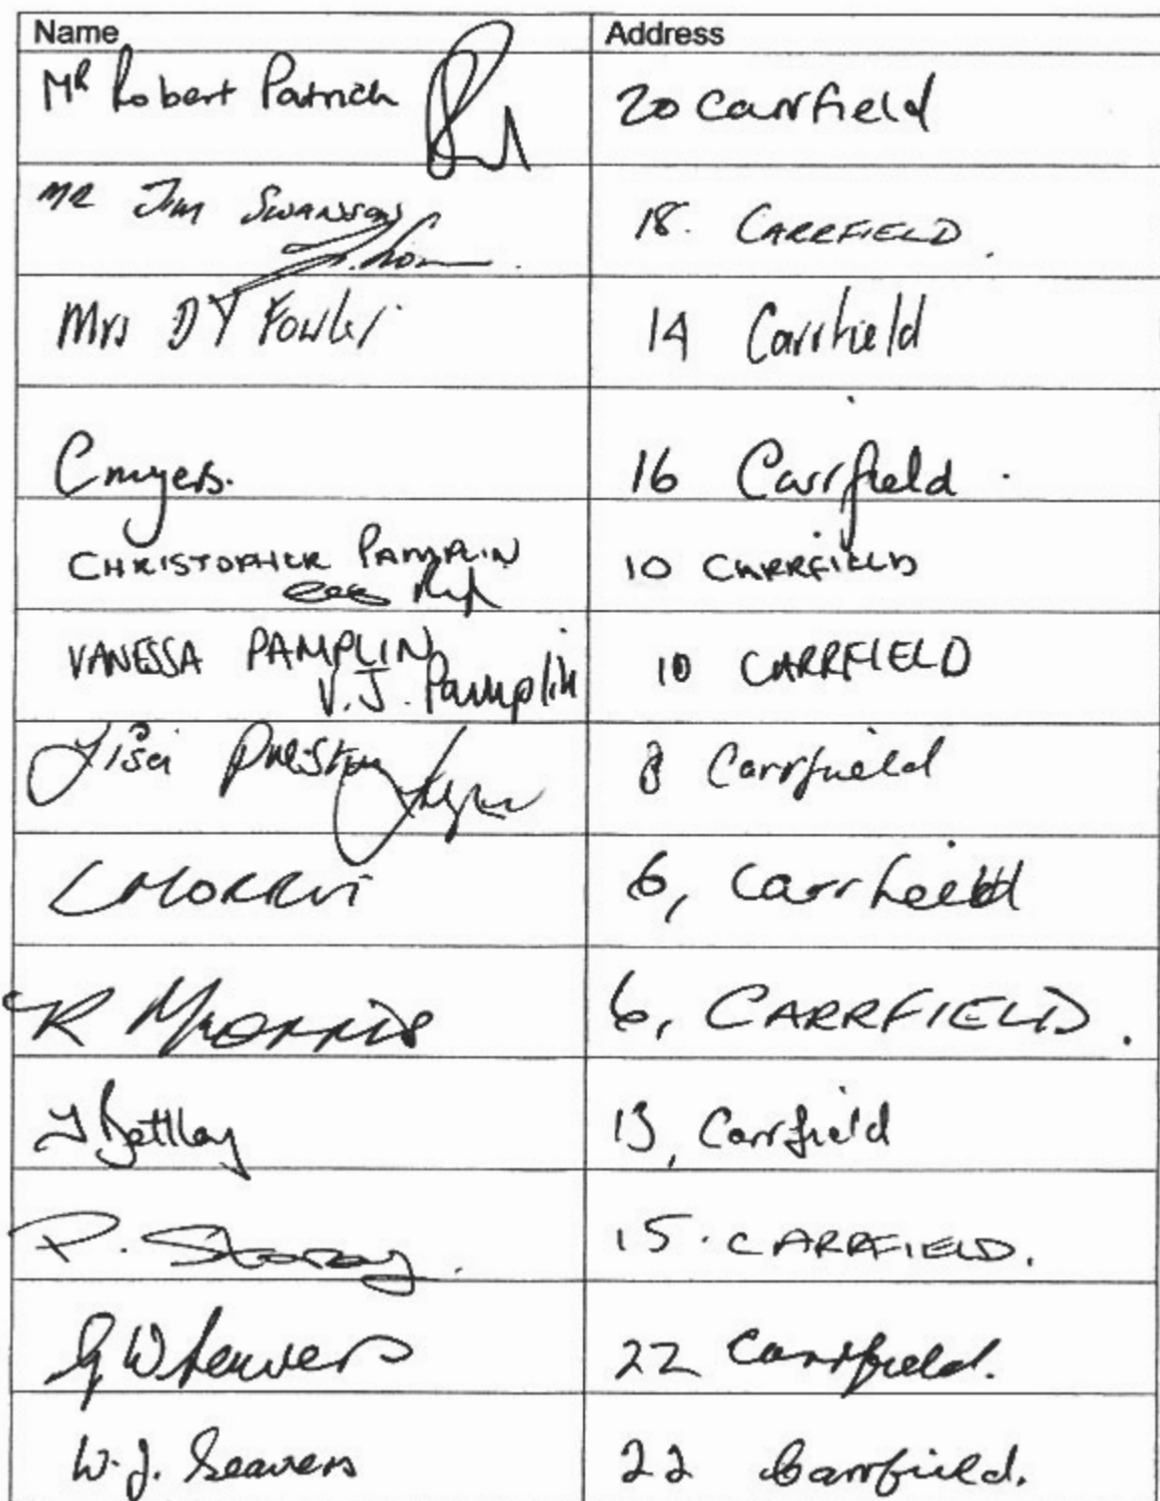 Name Address
Mr Robert Patrick 20 Carrfield
MR JIM SWANSON 18. CARRFIELD.
Mrs D Y Fowler 14 Carrfield
C Myers. 16 Carrfield.
CHRISTOPHER PAMPLIN 10 CARRFIELD
VANESSA PAMPLIN 10 CARRFIELD
V. J. Pamplin
Lisa Preston 8 Carrfield
C MORRIS 6, Carrfield
R MORRIS 6, CARRFIELD.
J Bettley 13, Carrfield
P. Storey. 15. CARRFIELD.
G W Seavers 22 Carrfield.
W. J. Seavers 22 Carrfield.